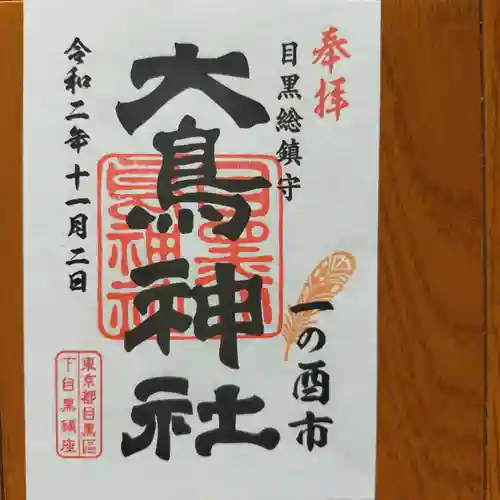 奉拝
目黒総鎮守
一の酉市
大鳥神社
令和二年十一月二日
東京都目黒区
下目黒鎮座